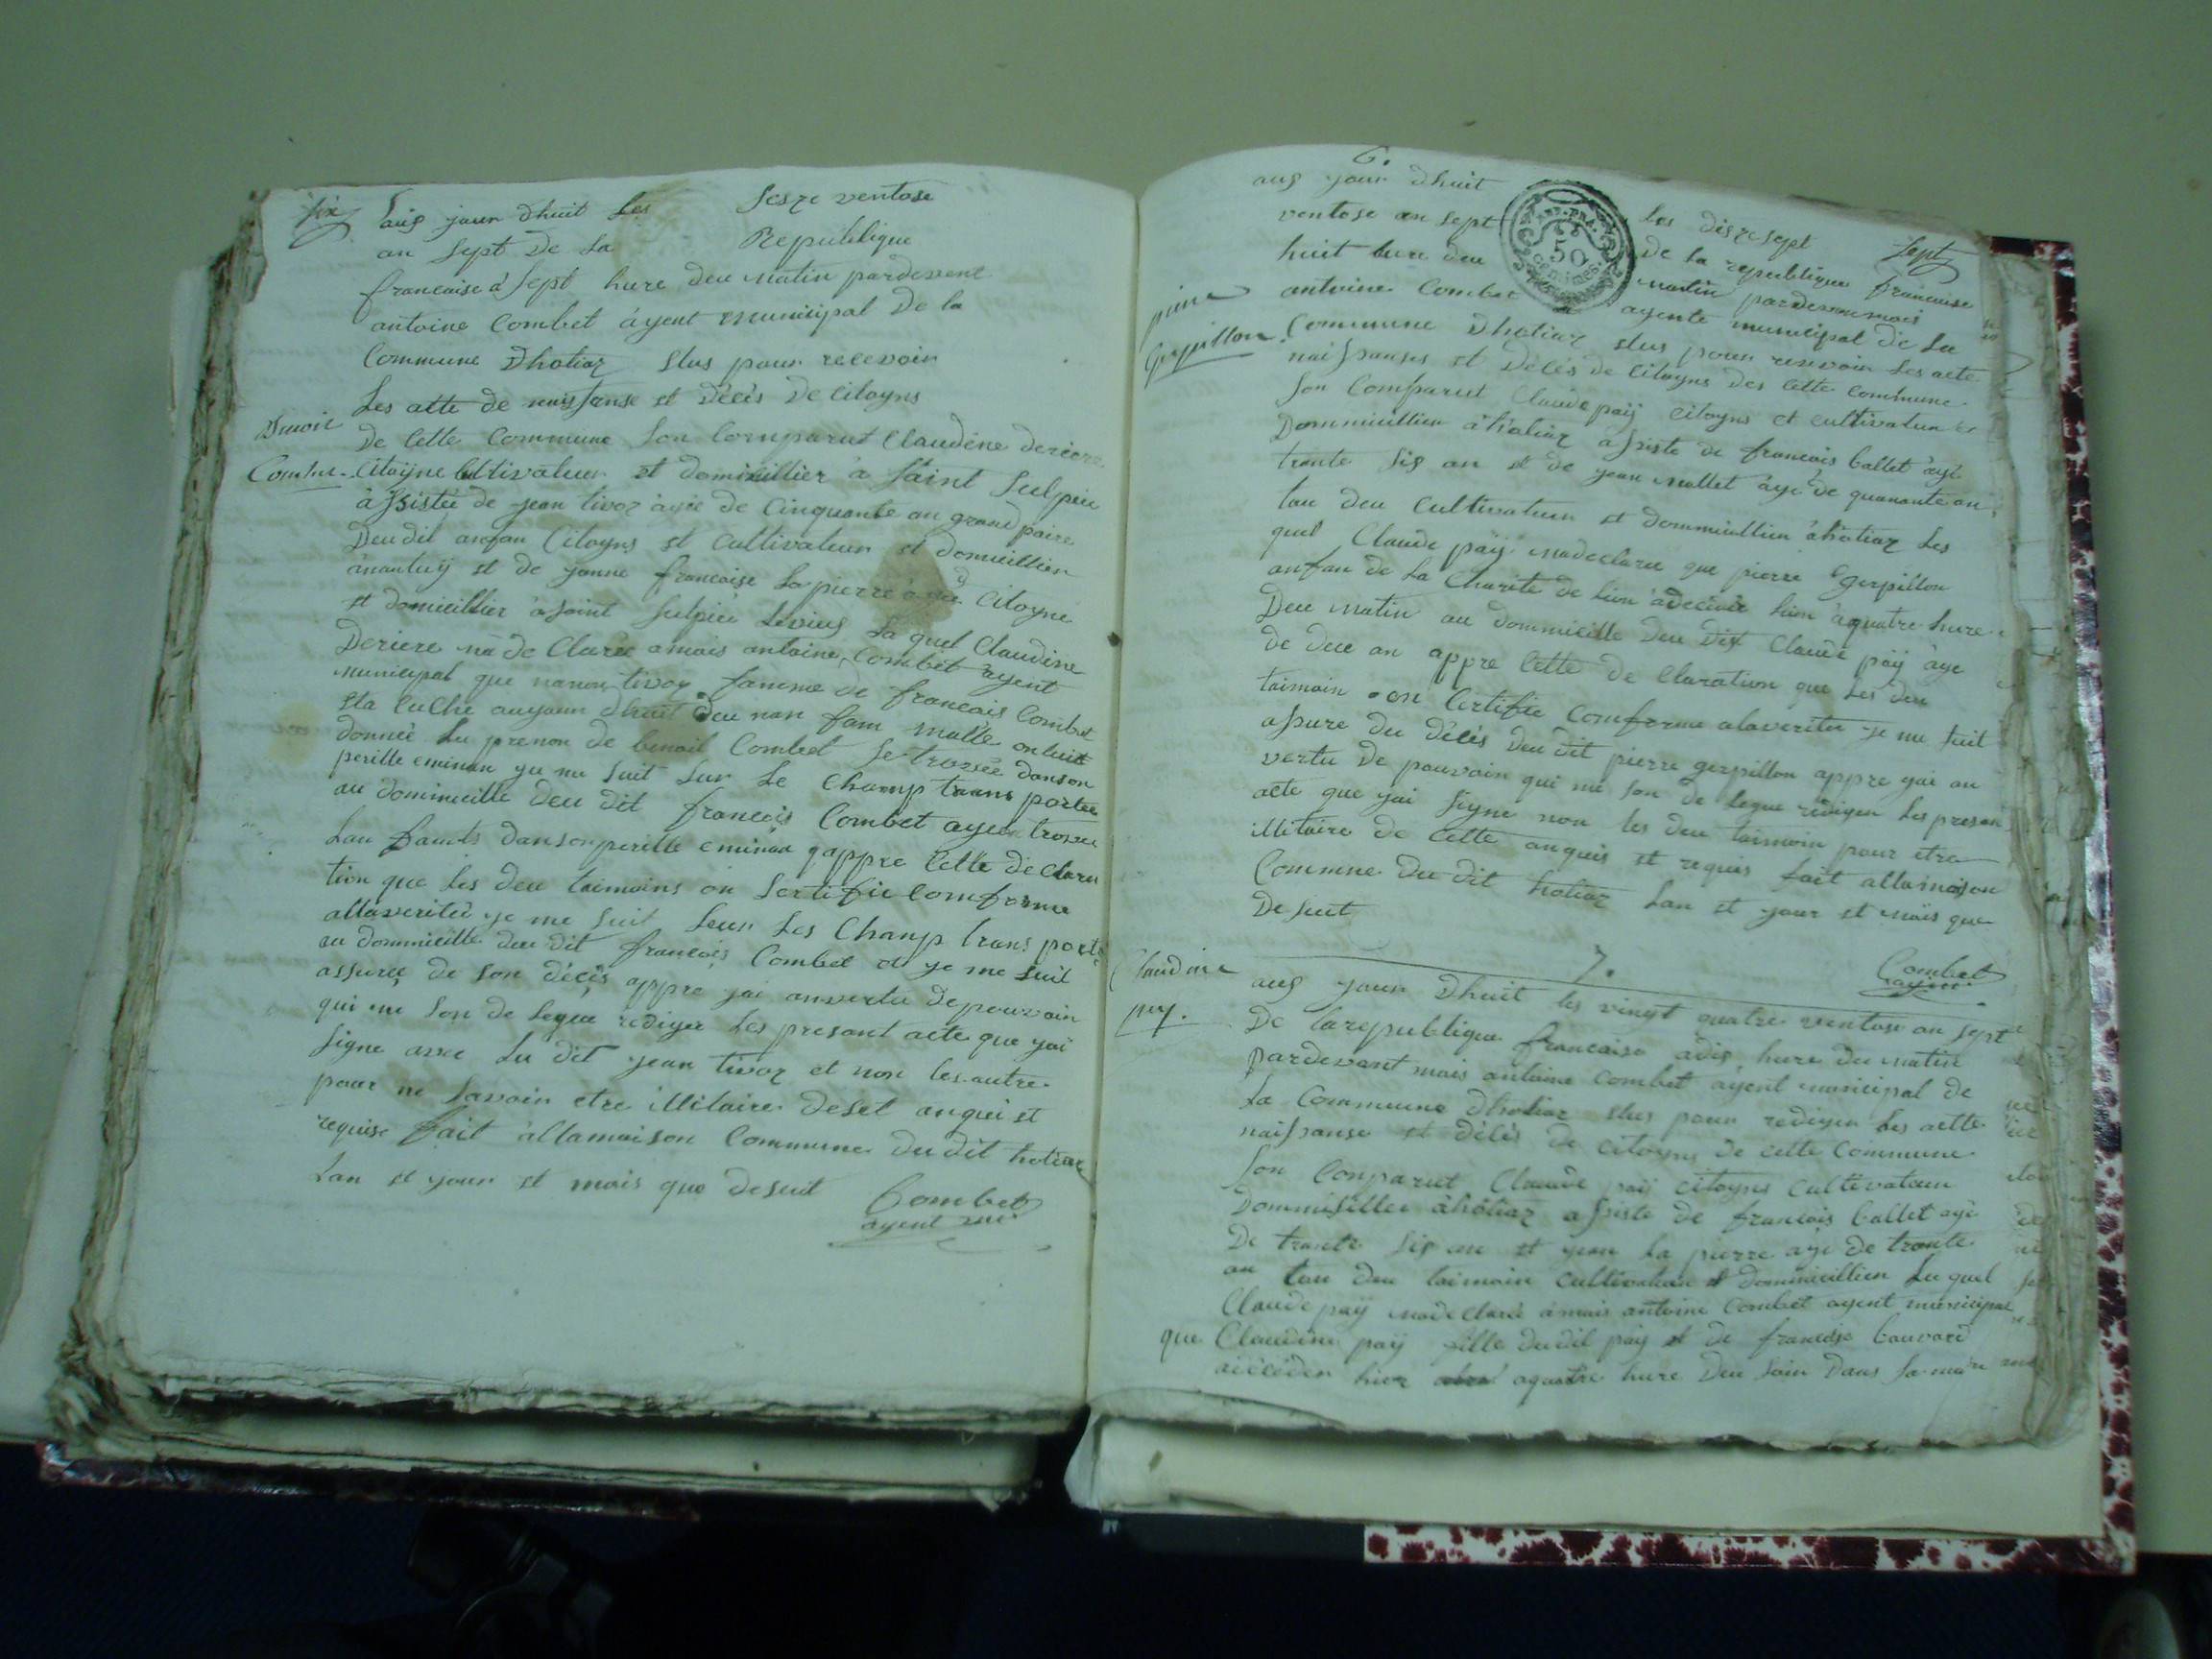 six
aug jour dhuit les sesze ventose
an sept de la Republique
francaise à sept hure deu matin pardevent
antoine Combet àyent municipal De la
Commune Dhotiaz slus pour recevoir
Les atte de naissanse et décès De Citoyns
De Cette Commune son Comparut Claudine deriere
Combet
Citoyne Cultivateur et domicillier à Saint Sulpice
àssistée de jean tivoz àgée de Cinquante an grand paire
Deu dit anfan Citoyns et Cultivateur et domicillier
ànantuÿ et de janne francoise la pierre àgée Citoyne
et domicillier àsaint sulpice Levieug La quel Claudine
Deriere ma de Claree amois antoine Combet ayent
municipal que nanon tivoz famme de francois Combet
sta Cuche augourdhuit deu nan fam malle on luit
donnéé Lu prenon de benoit Combet se trovée danson
perille eminan ye me suit sur Le Champ trans portée
au dommicille deu dit francois Combet ayen trovée
Lan fants dansonperille eminan yappre Cette de Clara
tion que Les deu taimoins on Sertifie Comforme
allaveritéé ye me suit seur Les Champ trans porté
au dommicille deu dit francois Combet et ye me suit
assuréé de son décès appre jai anvertu de pouvoir
qui me son de Legue rediger Les presant acte que jai
signe avec Lu dit jean tivoz et non les autre
pour ne savoir etre illitaire deset anqui et
requise fait àllamaison Commune du dit hotiaz
Lan et jour et mois que desuit
Combet
ayent mu.
6.
aug jour dhuit les dizesept
sept
ventose an sept de la republique francaise
huit hure deu matin pardevenmois
antoine Combet agente municipal de La
pierre
gerpillon
Commune Dhotiaz slus pour resevoir Les acte
naissanses et Décès de Citoyns des Cette Commune
son Comparut Claude paÿ Citoyns et cultivateur
Dommicillier àhotiaz assiste de francois ballet àgé
trante sis an et de jean mallet àgé de quarante an
tou deu Cultivateur et dommicillier àhotiaz Les
quel Claude paÿ madeclaree que pierre gerpillon
anfan de La Charite de Lion àdecide hier àquatre hure
Deu matin au dommicille deu dit Claude paÿ àge
de deu an appre Cette de Claration que Les deu
taimoin on Certifie Comforme alaverite ye me suit
assure du décés deu dit pierre gerpillon appre yai an
vertu De pouvoir qui me son de Legue rediger Les presan
acte que yai signe non les deu taimoin pour etre
illitaire de Cette anquis et requis fait allamaison
Commne Du dit hotiaz Lan et jour et mois que
De suit
Combet
ayent
7.
Claudine
pay.
aug jour Dhuit les vingt quatre ventose an sept
De larepublique francaise àdis hure du matin
pardevant mois antoine Combet ayent municipal de
La Commune dhotiaz slus pour rediger Les actte
naissanse et décés de citoyns de cette Commune
son Conparut Claude paÿ citoyns cultivateur
Dommisillee àhotiaz assiste de francois ballet agé
De trante sis an et jean La pierre age de trante
an tou deu taimoin cultivateur et dommicillier Lu quel
Claude paÿ madeclaré àmois antoine Combet ayent municipal
que Claudine paÿ fille dudit paÿ et de francoise bauvard
àdécéder hier aquatre hure Deu soir Dans sa